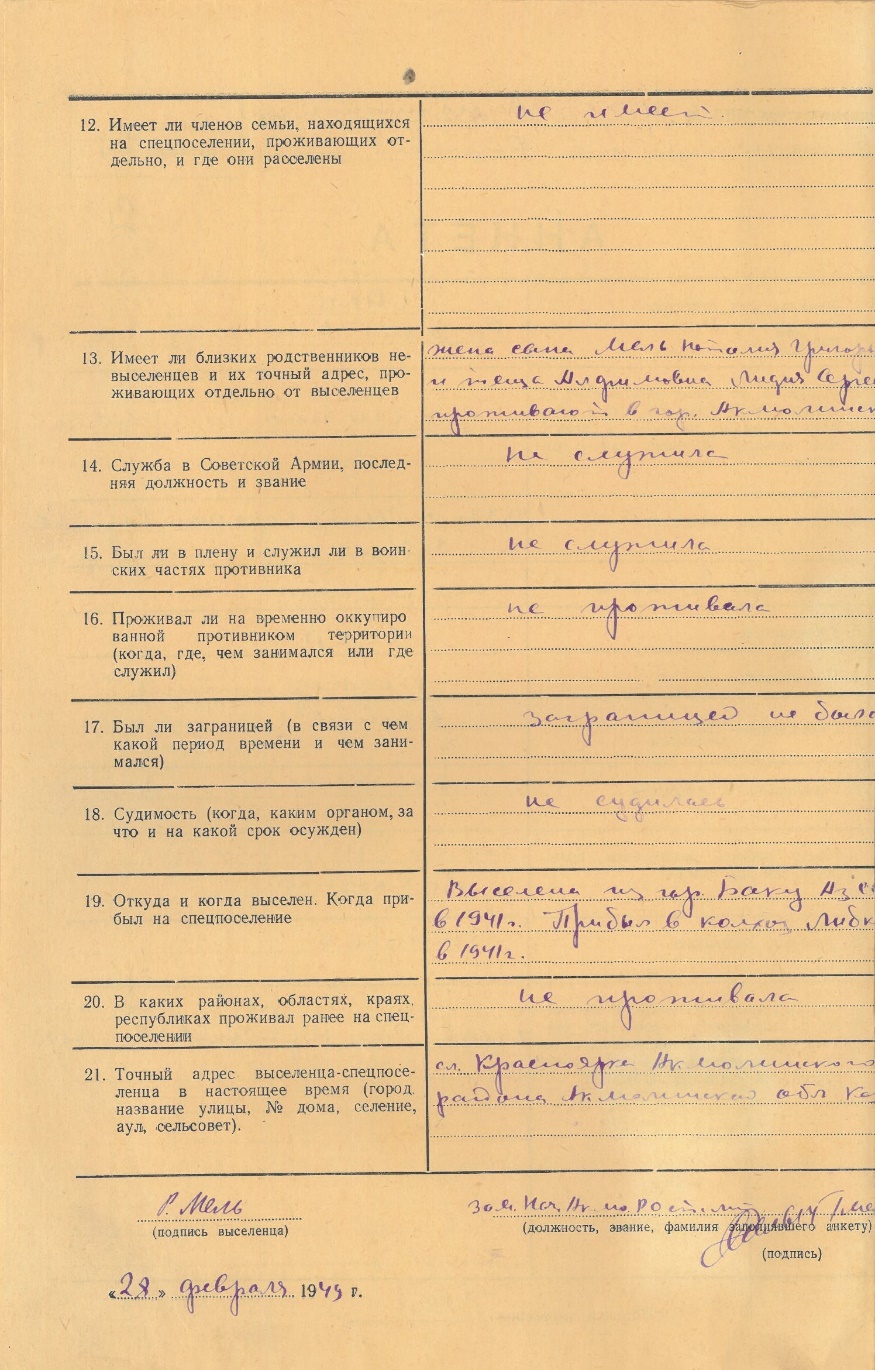 12. Имеет ли членов семьи, находящихся
на спецпоселении, проживающих от-
дельно, и где они расселены
не имеет.
13. Имеет ли близких родственников не-
выселенцев и их точный адрес, про-
живающих отдельно от выселенцев
жена сына Мель Наталия Григорь
и теща Алфимовна Лидия Серге
проживают в гор. Акмолинск
14. Служба в Советской Армии, послед-
няя должность и звание
не служила
15. Был ли в плену и служил ли в воин-
ских частях противника
не служила
16. Проживал ли на временно оккупиро
ванной противником территории
(когда, где, чем занимался или где
служил)
не проживала
17. Был ли заграницей (в связи с чем
какой период времени и чем зани-
мался)
заграницей не была
18. Судимость (когда, каким органом, за
что и на какой срок осужден)
не судилась
19. Откуда и когда выселен. Когда при-
был на спецпоселение
Выселена из гор. Баку Аз
в 1941г. Прибыл в колхоз Либк
в 1941г.
20. В каких районах, областях, краях,
республиках проживал ранее на спец-
поселении
не проживала
21. Точный адрес выселенца-спецпосе-
ленца в настоящее время (город,
название улицы, № дома, селение,
аул, сельсовет).
сл. Красноярка Акмолинского
района Акмолинской обл Ка
Р. Мель
(подпись выселенца)
Зам. Нач. Ак. РО
(должность, звание, фамилия заполнявшего анкету)
(подпись)
«28» февраля 1949 г.